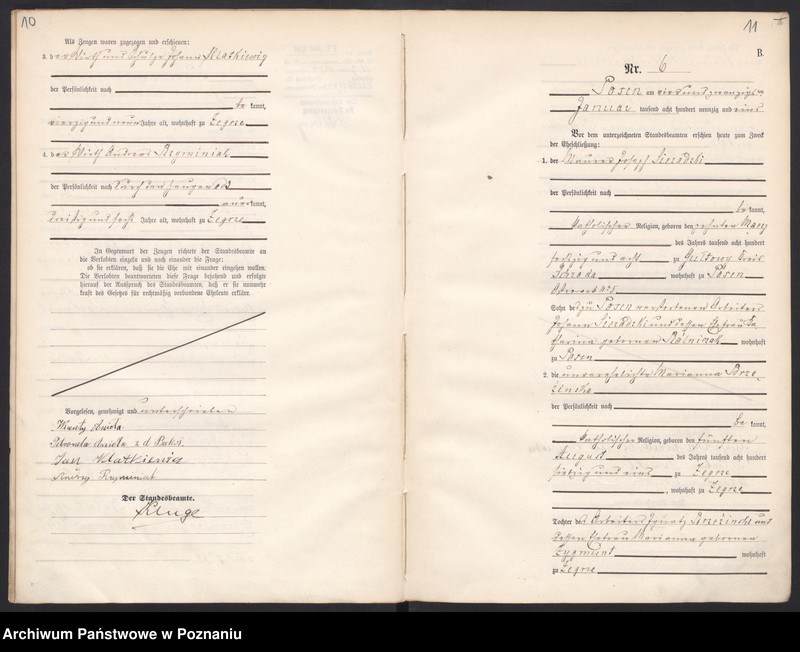 10
Als Zeugen waren zugezogen und erschienen:
3. der Wirth und Schulze Johann Klatkiewicz
der Persönlichkeit nach
be kannt,
vierzig und neun Jahre alt, wohnhaft zu Zegrze
4. der Wirth Andreas
der Persönlichkeit nach durch den Zeugen
aner kannt,
dreißig und sechs Jahre alt, wohnhaft zu Zegrze
In Gegenwart der Zeugen richtete der Standesbeamte an
die Verlobten einzeln und nach einander die Frage:
ob sie erklären, daß sie die Ehe mit einander eingehen wollen.
Die Verlobten beantworteten diese Frage bejahend und erfolgte
hierauf der Ausspruch des Standesbeamten, daß er sie nunmehr
kraft des Gesetzes für rechtmäßig verbundene Eheleute erkläre.
Vorgelesen, genehmigt und unterschrieben
z d
Jan Klatkiewicz
Der Standesbeamte.
Kluge
11
B.
Nr. 6
Posen am vier und zwanzigsten
Januar tausend acht hundert neunzig und eins
Vor dem unterzeichneten Standesbeamten erschien heute zum Zweck
der Eheschließung:
1. der Maurer Joseph Sieradzki
der Persönlichkeit nach
be kannt,
katholischer Religion, geboren den zehnten März
des Jahres tausend acht hundert
sechzig und acht zu Gultowy Kreis
Schroda, wohnhaft zu Posen
Sohn des zu Posen verstorbenen Arbeiters
Johann Sieradzki und dessen Ehefrau Ka-
tharina geborenen wohnhaft
zu Posen
2. die unverehelichte Marianna Brze-
zinska
der Persönlichkeit nach
be kannt,
katholischer Religion, geboren den fünften
August des Jahres tausend acht hundert
siebzig und eins zu Zegrze
, wohnhaft zu Zegrze
Tochter des Arbeiters Ignatz Brzezinski und
dessen Ehefrau Marianna geborenen
Zygmunt wohnhaft
zu Zegrze
Archiwum Państwowe w Poznaniu